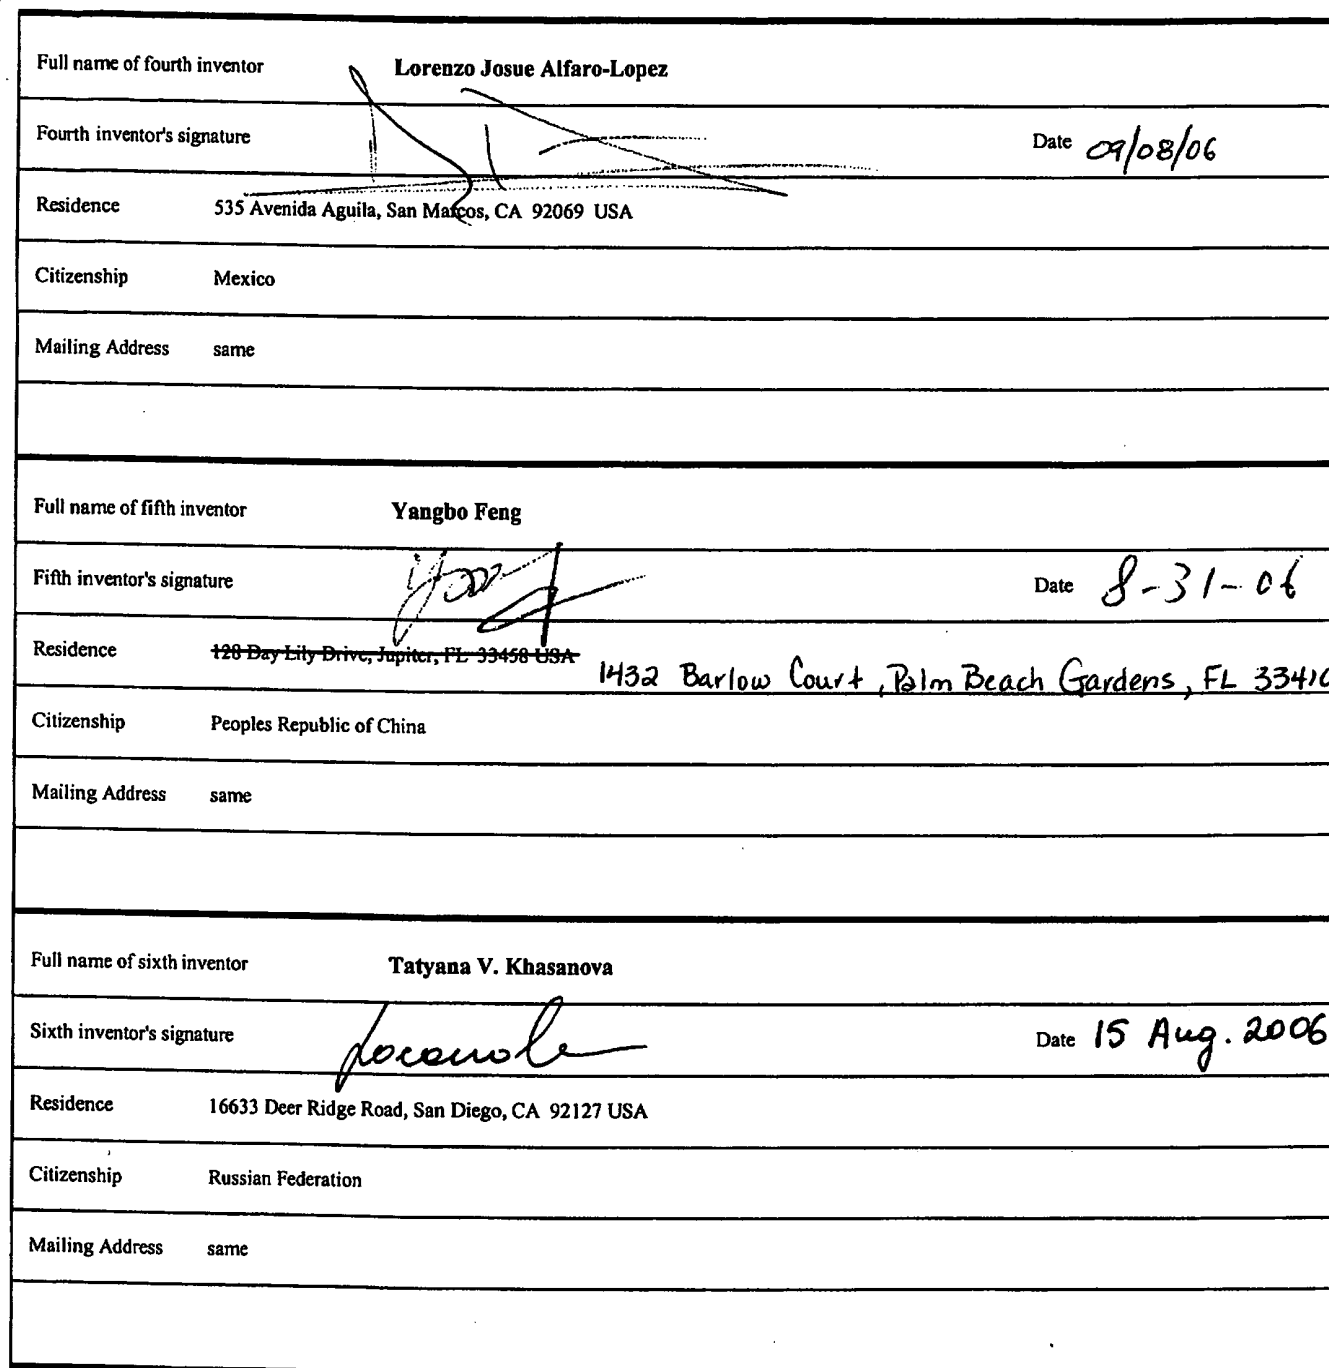 Full name of fourth inventor Lorenzo Josue Alfaro-Lopez
Fourth inventor's signature Date 09/08/06
Residence 535 Avenida Aguila, San Marcos, CA 92069 USA
Citizenship Mexico
Mailing Address same
Full name of fifth inventor Yangbo Feng
Fifth inventor's signature Date 8-31-06
Residence 128 Day Lily Drive, Jupiter, FL 33458 USA 1432 Barlow Court, Palm Beach Gardens, FL 33410
Citizenship Peoples Republic of China
Mailing Address same
Full name of sixth inventor Tatyana V. Khasanova
Sixth inventor's signature Date 15 Aug. 2006
Residence 16633 Deer Ridge Road, San Diego, CA 92127 USA
Citizenship Russian Federation
Mailing Address same